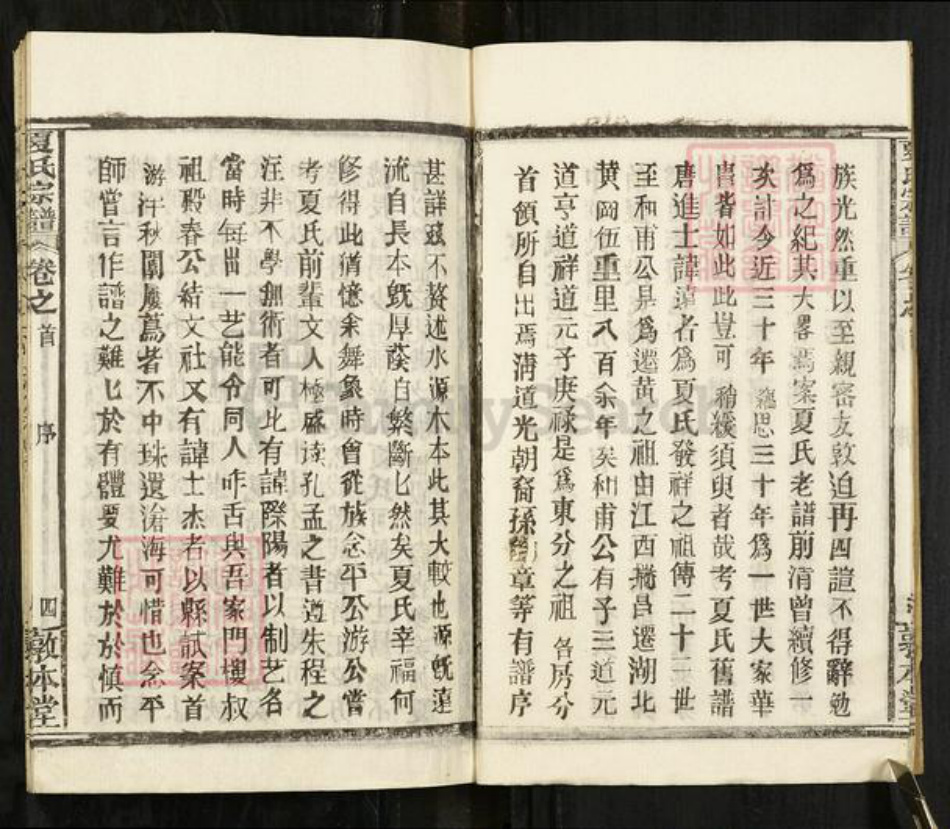 族光然重以至親密友敦迫再四諠不得辭勉
爲之紀其大畧焉案夏氏老譜前清曾續修一
次計今近三十年 思三十年爲一世大家華
冑皆如此此豈可稍緩須臾者哉考夏氏舊譜
唐進士諱遠者爲夏氏發祥之祖傳二十三世
至和甫公昇爲遷黄之祖由江西 昌遷湖北
黄岡伍重里八百余年矣和甫公有子三道元
道亨道祥道元子庚祿是爲東分之祖各房分
首領所自出焉淸道光朝裔孫 章等有譜序
甚詳茲不贅述水源木本此其大較也源旣遠
流自長本旣厚葉自繁斷匕然矣夏氏幸福何
修得此猶憶余舞象時曾從族念平公游公嘗
考夏氏前輩文人極盛讀孔孟之書遵朱程之
注非不學無術者可比有諱際陽者以制艺名
當時每出一艺能令同人咋舌與吾家門樓叔
祖殿春公結文社又有諱士杰者以縣試案首
游泮秋闈屢薦者不中珠遺滄海可惜也念平
師嘗言作譜之難匕於有體要尤難於於慎而
夏氏宗譜
卷之首
序
四
敦本堂
夏氏宗譜
卷之
敦本堂
FamilySearch